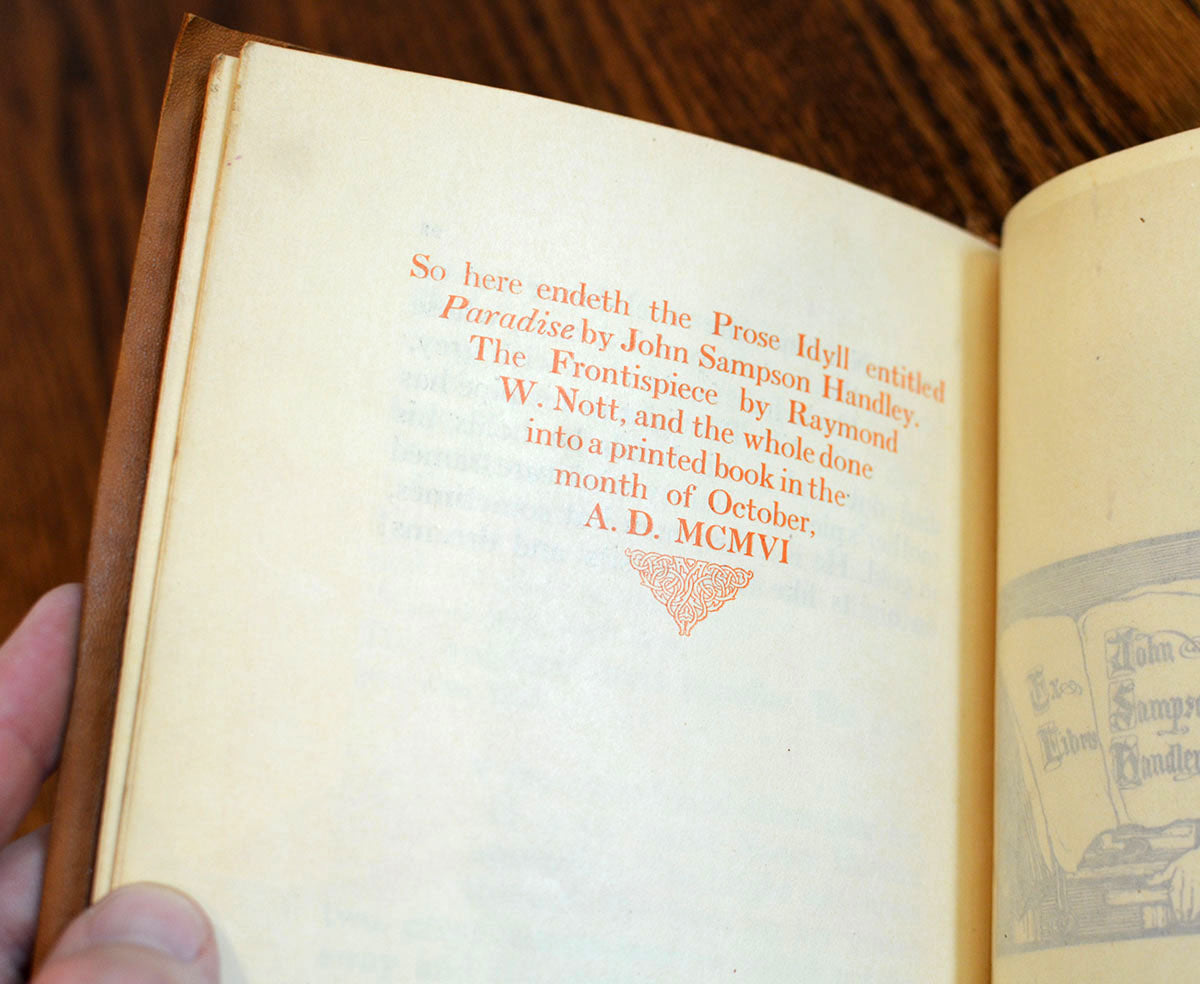 So here endeth the Prose Idyll entitled
Paradise by John Sampson Handley.
The Frontispiece by Raymond
W. Nott, and the whole done
into a printed book in the
month of October,
A. D. MCMVI
Ex
Libris
John
Handley